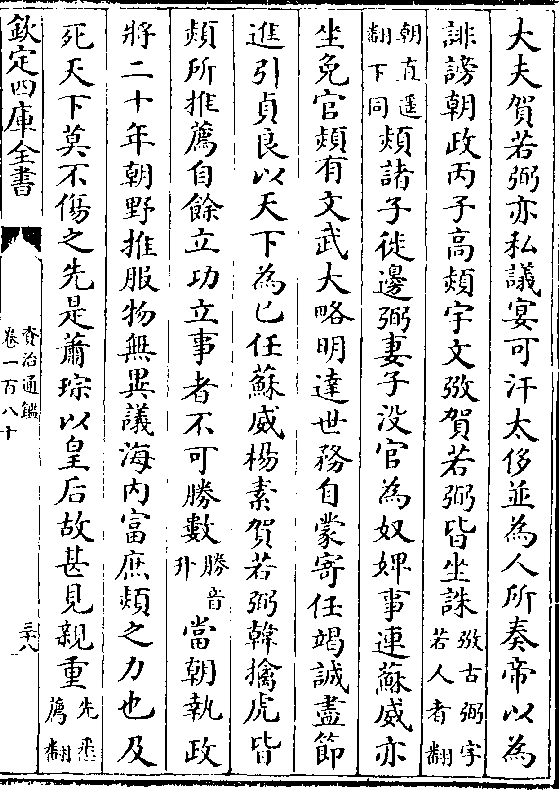 大夫賀若弼亦私議宴可汗太侈並為人所奏帝以為
誹謗朝政丙子高熲宇文㢸賀若弼皆坐誅㢸古弼字若人者翻
朝直遥翻下同熲諸子徙邊弼妻子没官為奴婢事連蘇威亦
坐免官熲有文武大略明達世務自蒙寄任竭誠盡節
進引貞良以天下為已任蘇威楊素賀若弼韓擒虎皆
熲所推薦自餘立功立事者不可勝數勝音升當朝執政
將二十年朝野推服物無異議海内富庶熲之力也及
死天下莫不傷之先是蕭琮以皇后故甚見親重先悉薦翻
欽定四庫全書
資治通鑑
卷一百八十
三十八